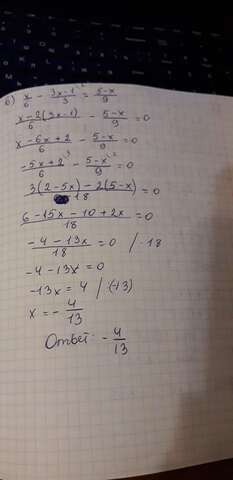 б) x/6 - 3x-1/3 = 5-x/9
x-2(3x-1)/6 - 5-x/9 = 0
x-6x+2/6 - 5-x/9 = 0
-5x+2/6 - 5-x/9 = 0
3(2-5x)-2(5-x)/18 = 0
6-15x-10+2x/18 = 0
-4-13x/18 = 0 /·18
-4-13x = 0
-13x = 4 /:(-13)
x = -4/13
Ответ: -4/13